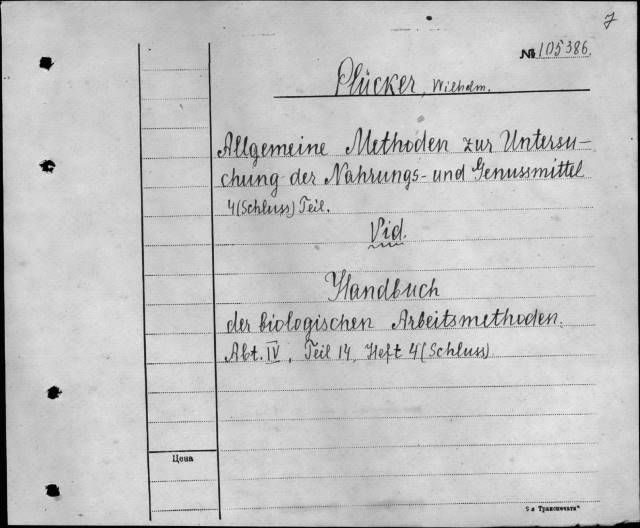 7
№ 105386.
Plücker, Wilhelm.
Allgemeine Methoden zur Untersu-
chung der Nahrungs- und Genussmittel
4 (Schluss) Teil.
Vid.
Handbuch
der biologischen Arbeitsmethoden.
Abt. IV, Teil 14, Heft 4 (Schluss)
Цена
"9-я Транспечать"